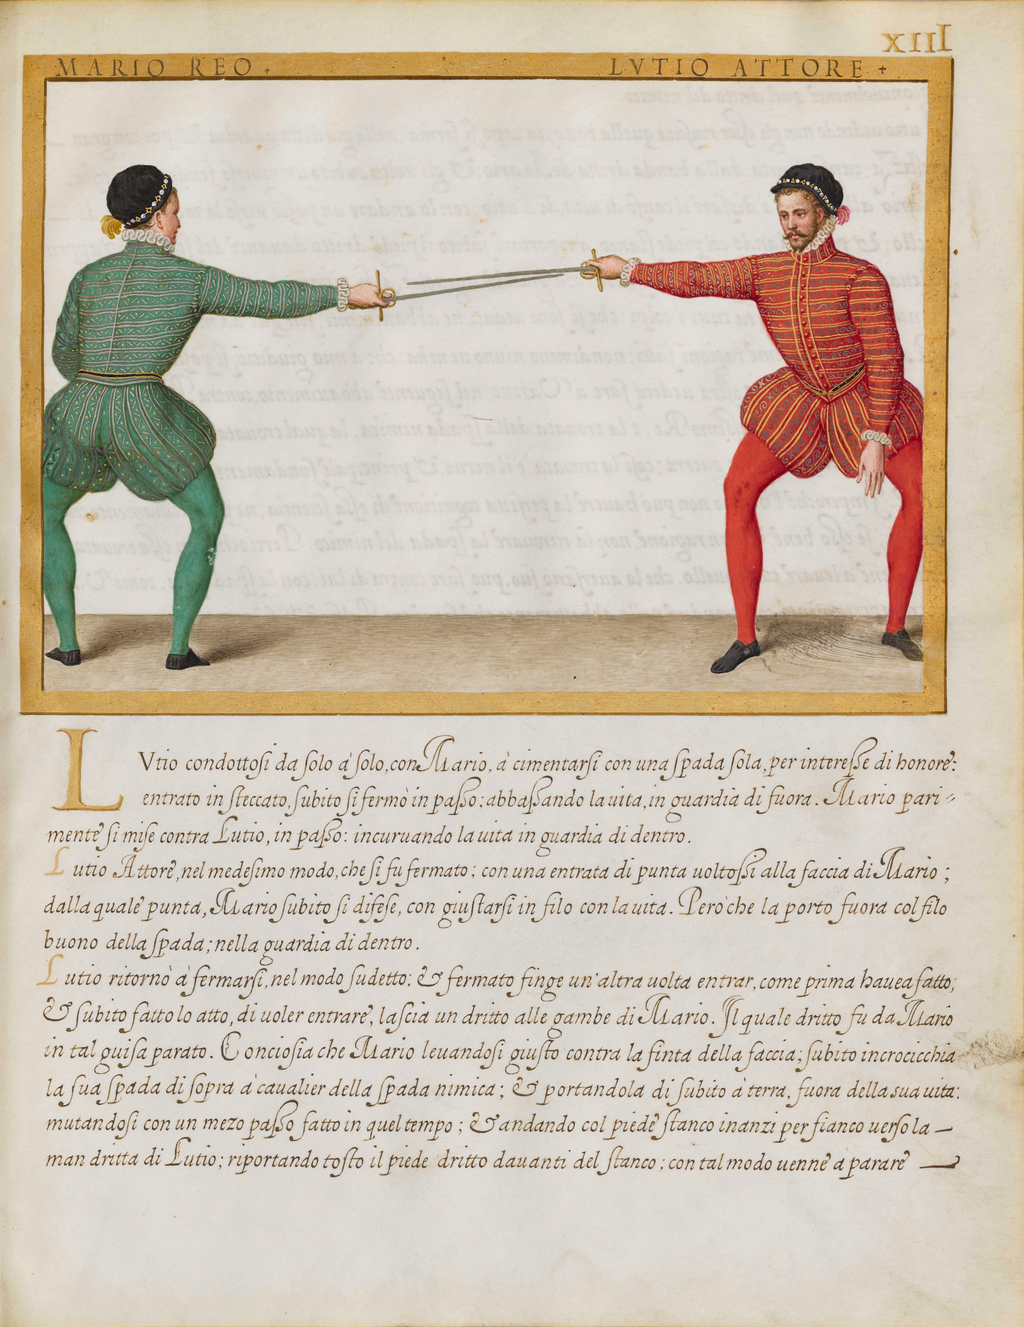 XIII
MARIO REO +
LVTIO ATTORE +
LVtio condottosi da solo à solo, con Mario, à cimentarsi con una spada sola, per interesse di honore:
entrato in steccato, subito si fermò in passo; abbassando la uita, in guardia di fuora. Mario pari=
mente si mise contra Lutio, in passo: incuruando la uita in guardia di dentro.
Lutio Attore, nel medesimo modo, che si fu fermato; con una entrata di punta uoltossi alla faccia di Mario;
dalla quale punta, Mario subito si difese, con giustarsi in filo con la uita. Però che la porto fuora col filo
buono della spada; nella guardia di dentro.
Lutio ritornò à fermarsi, nel modo sudetto: & fermato finge un'altra uolta entrar, come prima hauea fatto;
& subito fatto lo atto, di uoler entrare, lascia un dritto alle gambe di Mario. Il quale dritto fu da Mario
in tal guisa parato. Conciosia che Mario leuandosi giusto contra la finta della faccia; subito incrocicchia
la sua spada di sopra à caualier della spada nimica; & portandola di subito à terra, fuora della sua uita:
mutandosi con un mezo passo fatto in quel tempo; & andando col piede stanco inanzi per fianco uerso la
man dritta di Lutio; riportando tosto il piede dritto dauanti del stanco; con tal modo uenne à parare